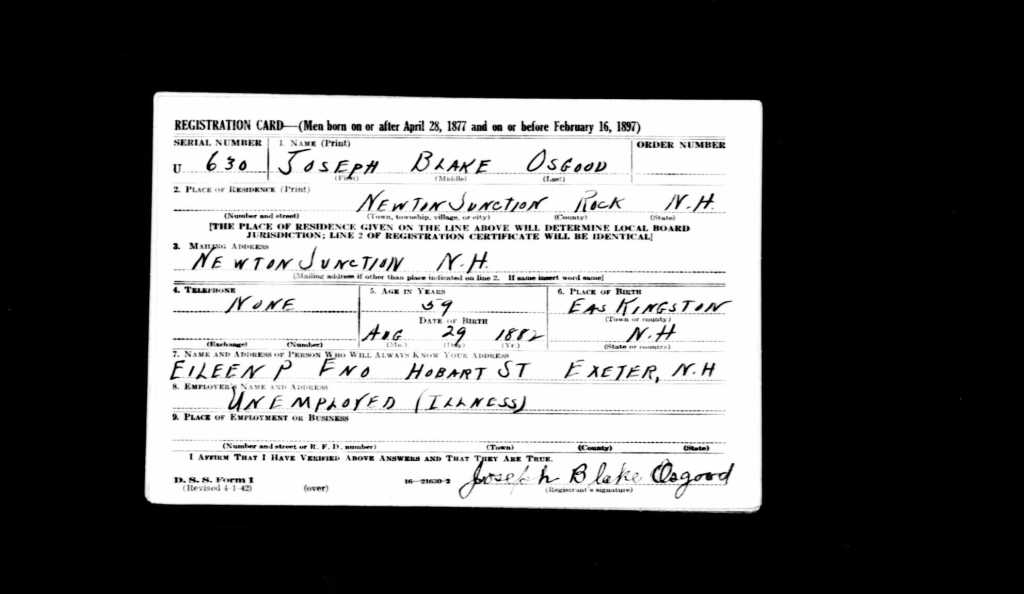 REGISTRATION CARD—(Men born on or after April 28, 1877 and on or before February 16, 1897)
SERIAL NUMBER 1. NAME (Print) ORDER NUMBER
U 630 JOSEPH BLAKE OSGOOD
(First) (Middle) (Last)
2. PLACE OF RESIDENCE (Print)
NEWTON JUNCTION ROCK N.H.
(Number and street) (Town, township, village, or city) (County) (State)
[THE PLACE OF RESIDENCE GIVEN ON THE LINE ABOVE WILL DETERMINE LOCAL BOARD
JURISDICTION; LINE 2 OF REGISTRATION CERTIFICATE WILL BE IDENTICAL]
3. MAILING ADDRESS
NEWTON JUNCTION N.H.
[Mailing address if other than place indicated on line 2. If same insert word same]
4. TELEPHONE 5. AGE IN YEARS 6. PLACE OF BIRTH
NONE 59 EAS KINGSTON
DATE OF BIRTH (Town or county)
AUG 29 1882 N.H
(Exchange) (Number) (Mo.) (Day) (Yr.) (State or country)
7. NAME AND ADDRESS OF PERSON WHO WILL ALWAYS KNOW YOUR ADDRESS
EILEEN P ENO HOBART ST EXETER, N.H
8. EMPLOYER'S NAME AND ADDRESS
UNEMPLOYED (ILLNESS)
9. PLACE OF EMPLOYMENT OR BUSINESS
(Number and street or R. F. D. number) (Town) (County) (State)
I AFFIRM THAT I HAVE VERIFIED ABOVE ANSWERS AND THAT THEY ARE TRUE.
D. S. S. Form 1 Joseph Blake Osgood
(Revised 4-1-42) (over) 16—21630-2 (Registrant's signature)